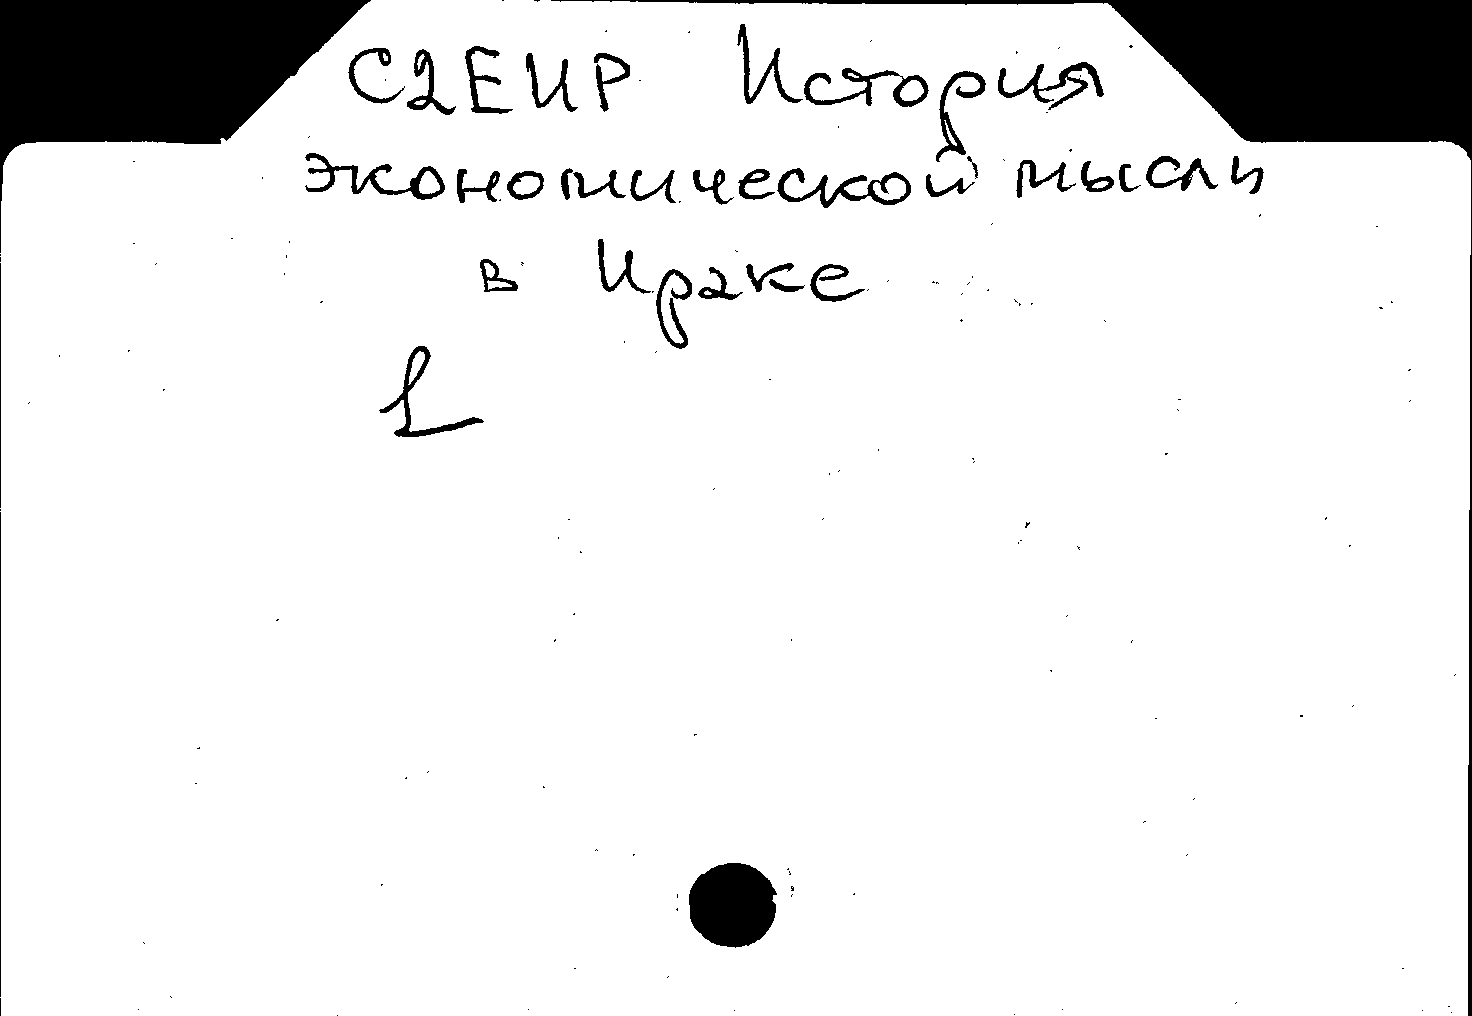 С2ЕИР История
экономической мысли
в Ираке
1